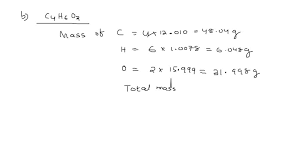 b) C4H6O2
Mass of C = 4 × 12.010 = 48.04 g
H = 6 × 1.0078 = 6.048 g
O = 2 × 15.999 = 31.998 g
Total mass